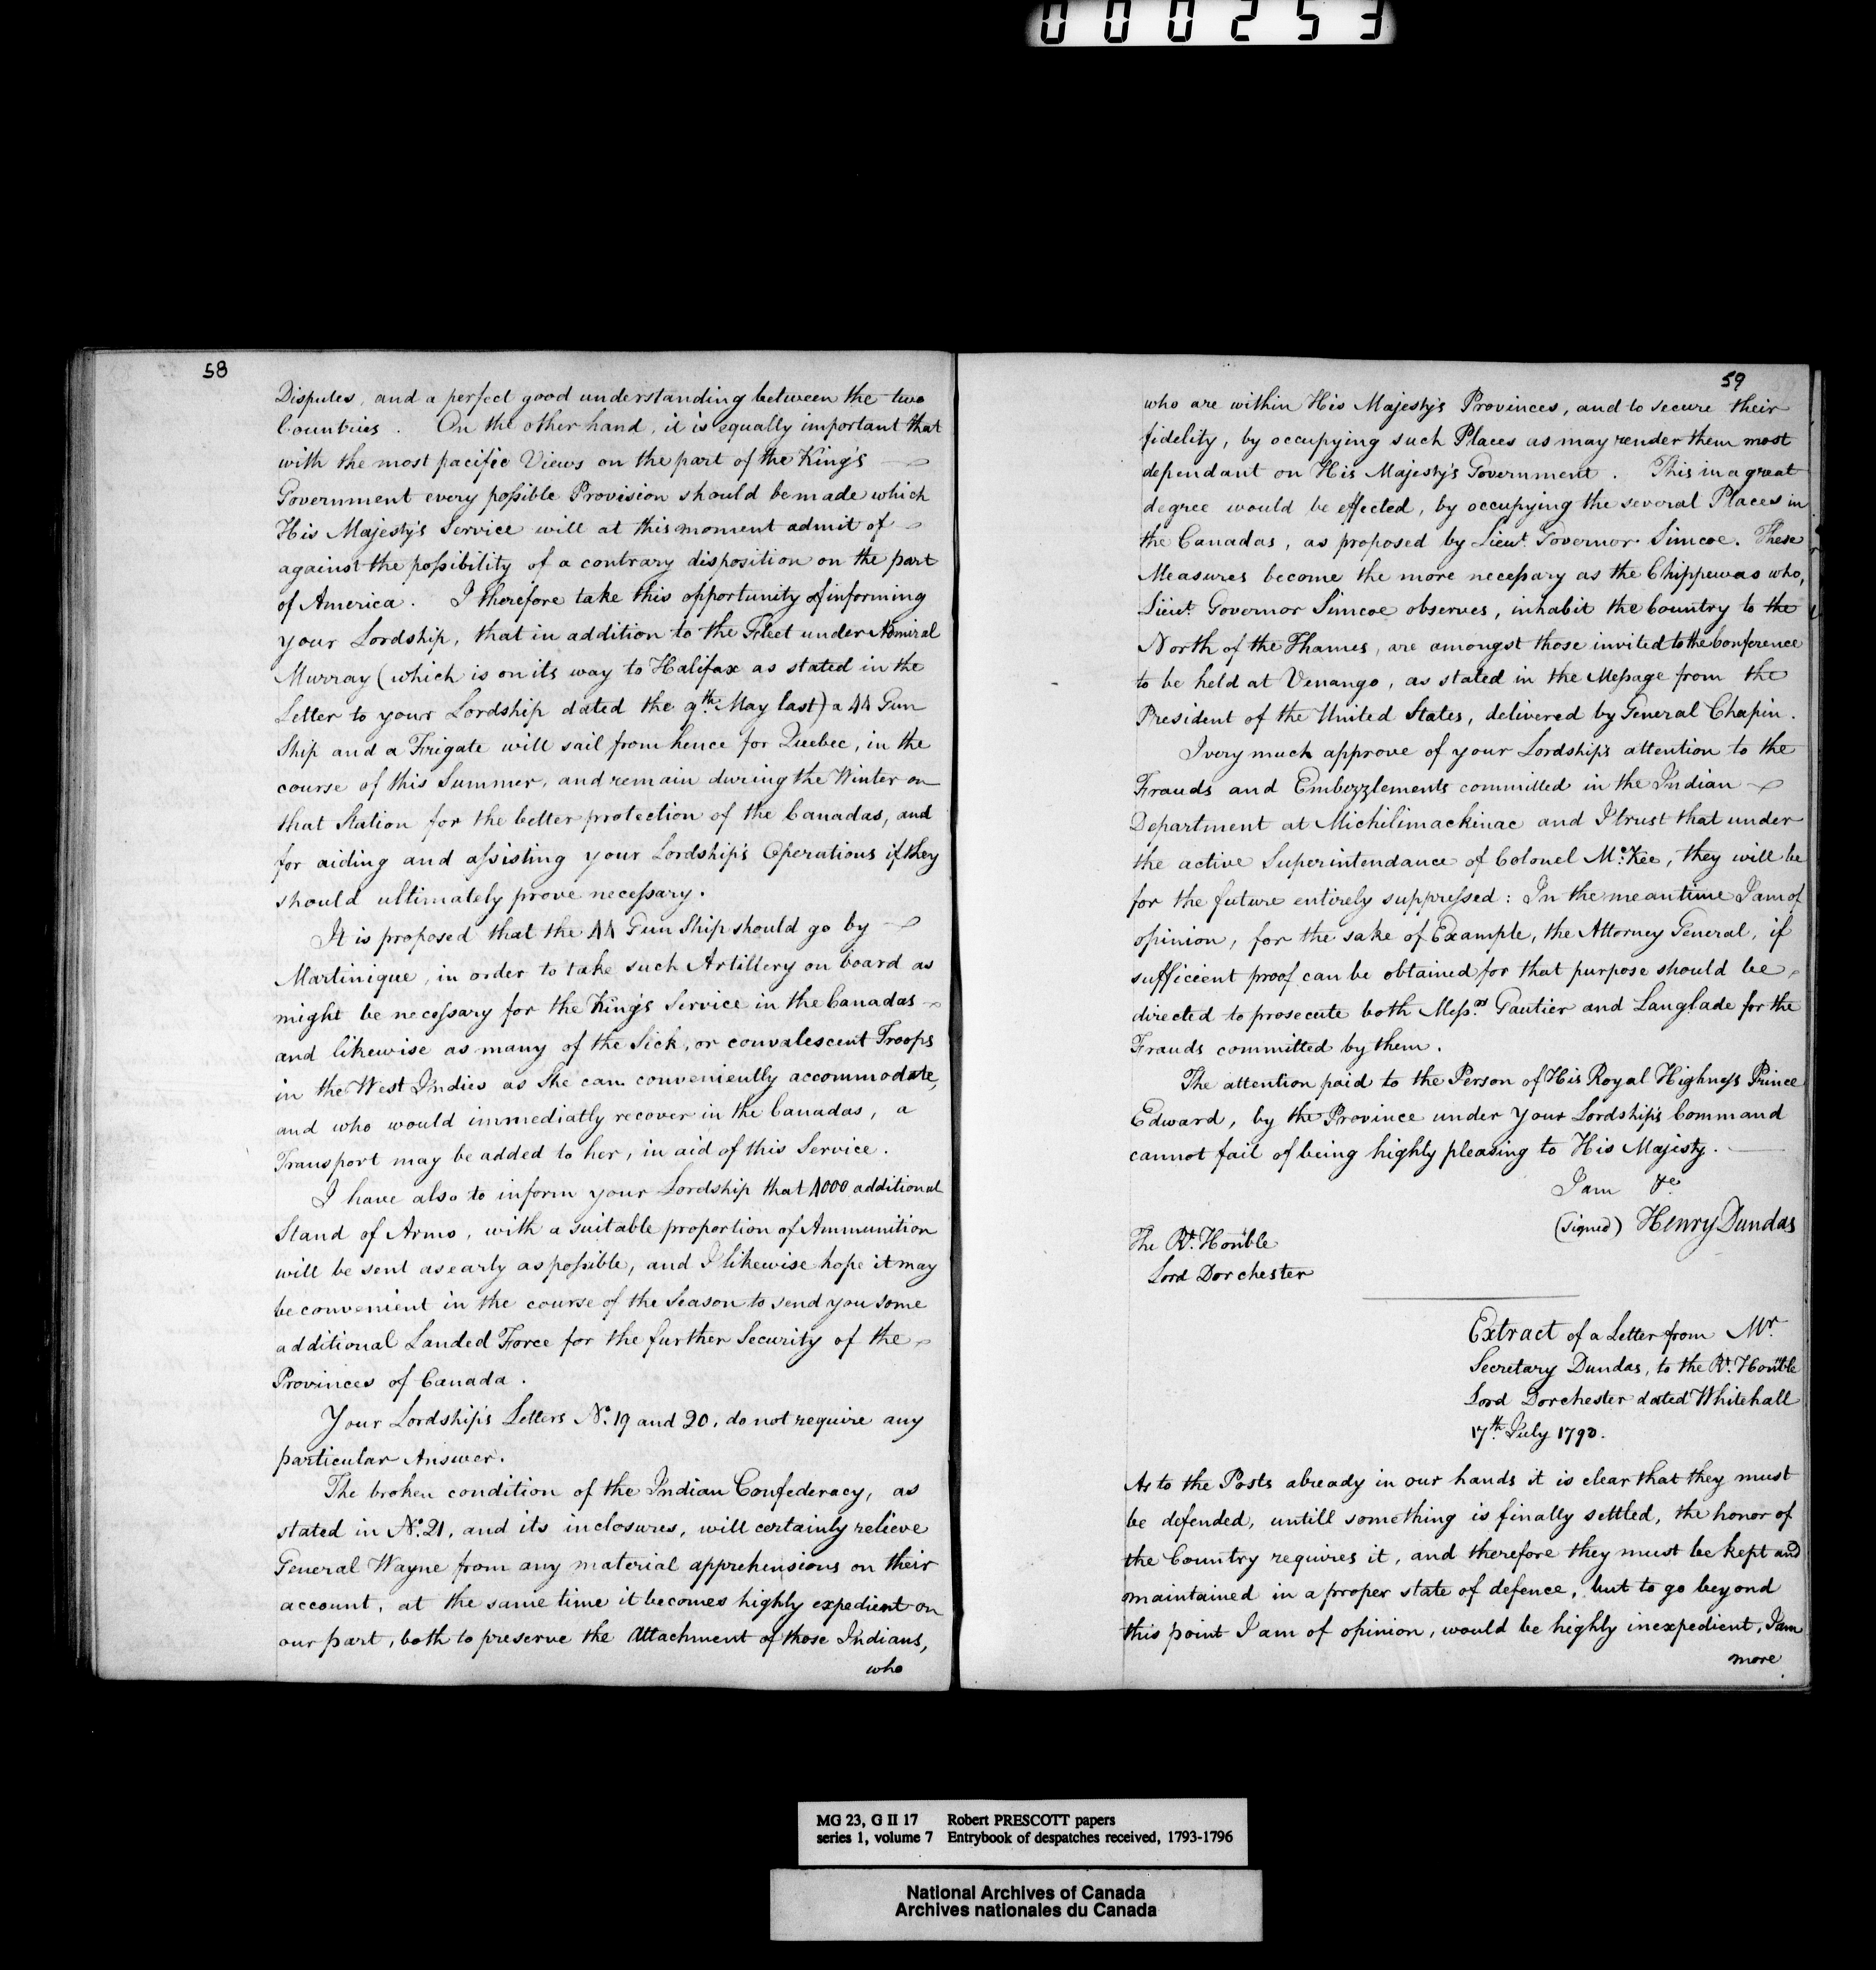 000253
58
Disputes, and a perfect good understanding between the two
Countries. On the other hand, it is equally important that
with the most pacific Views on the part of the King's
Government every possible Provision should be made which
His Majesty's Service will at this moment admit of
against the possibility of a contrary disposition on the part
of America. I therefore take this opportunity of informing
your Lordship, that in addition to the Fleet under Admiral
Murray (which is on its way to Halifax as stated in the
Letter to your Lordship dated the 9th. May last) a 44 Gun
Ship and a Frigate will sail from hence for Quebec, in the
course of this Summer, and remain during the Winter on
that Station for the better protection of the Canadas, and
for aiding and assisting your Lordship's Operations if they
should ultimately prove necessary.
It is proposed that the 44 Gun Ship should go by
Martinique, in order to take such Artillery on board as
might be necessary for the King's Service in the Canadas
and likewise as many of the Sick, or convalescent Troops
in the West Indies as She can conveniently accommodate,
and who would immediatly recover in the Canadas, a
Transport may be added to her, in aid of this Service.
I have also to inform your Lordship that 4000 additional
Stand of Arms, with a suitable proportion of Ammunition
will be sent as early as possible, and I likewise hope it may
be convenient in the course of the Season to send you some
additional Landed Force for the further Security of the
Provinces of Canada.
Your Lordship's Letters No. 19 and 20, do not require any
particular Answer.
The broken condition of the Indian Confederacy, as
stated in No. 21, and its inclosures, will certainly relieve
General Wayne from any material apprehensions on their
account, at the same time it becomes highly expedient on
our part, both to preserve the Attachment of those Indians,
who
59
who are within His Majesty's Provinces, and to secure their
fidelity, by occupying such Places as may render them most
dependant on His Majesty's Government. This in a great
degree would be effected, by occupying the several Places in
the Canadas, as proposed by Lieut. Governor Simcoe. These
Measures become the more necessary as the Chippewas who,
Lieut. Governor Simcoe observes, inhabit the Country to the
North of the Thames, are amongst those invited to the Conference
to be held at Venango, as stated in the Message from the
President of the United States, delivered by General Chapin.
I very much approve of your Lordship's attention to the
Frauds and Embezzlements committed in the Indian
Department at Michilimackinac and I trust that under
the active Superintendance of Colonel Mc.Kee, they will be
for the future entirely suppressed: In the meantime I am of
opinion, for the sake of Example, the Attorney General, if
sufficient proof can be obtained for that purpose should be
directed to prosecute both Messrs. Gautier and Langlade for the
Frauds committed by them.
The attention paid to the Person of His Royal Highness Prince
Edward, by the Province under Your Lordship's Command
cannot fail of being highly pleasing to His Majesty.
I am &c
(signed) Henry Dundas
The Rt. Honble
Lord Dorchester
Extract of a Letter from Mr.
Secretary Dundas, to the Rt. Honble
Lord Dorchester dated Whitehall
17th. July 1793.
As to the Posts already in our hands it is clear that they must
be defended, untill something is finally settled, the honor of
the Country requires it, and therefore they must be kept and
maintained in a proper state of defence, but to go beyond
this point I am of opinion, would be highly inexpedient, I am
more
MG 23, G II 17 Robert PRESCOTT papers
series 1, volume 7 Entrybook of despatches received, 1793-1796
National Archives of Canada
Archives nationales du Canada